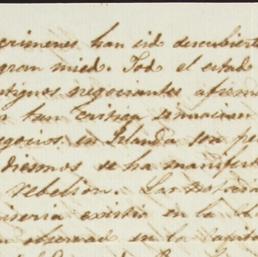 crimenes han sid descubiert
gran mied. Tod el estado
ntiguos negociantes afirm
r tan critica situacion
egocios. en Irlanda sea pe
diesmos se ha manifest
rebelion. Las noticia
iseria existio en la
n observad en la Capit